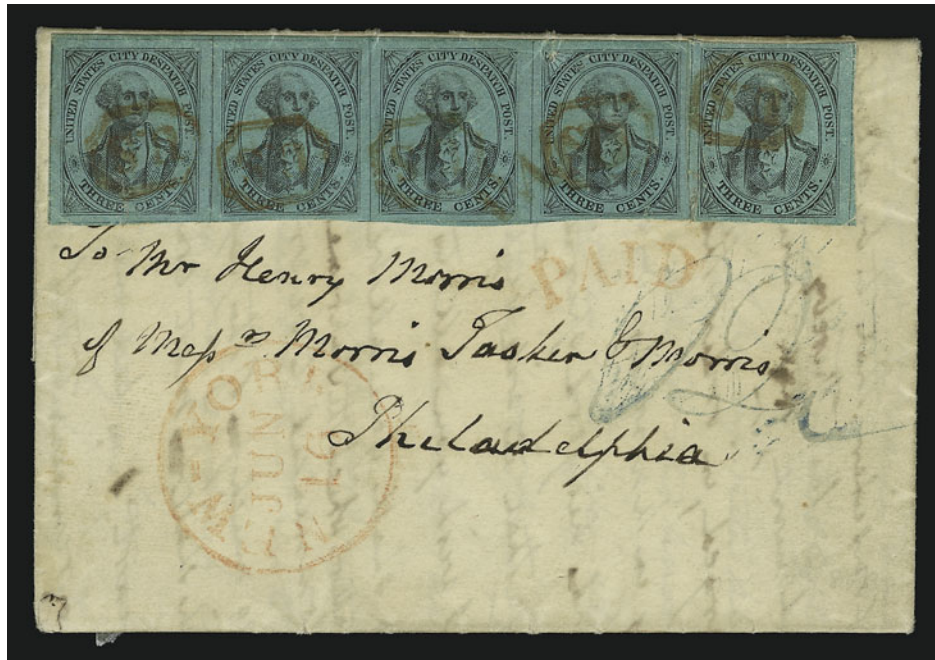 UNITED STATES CITY DESPATCH POST. THREE CENTS.
UNITED STATES CITY DESPATCH POST. THREE CENTS.
UNITED STATES CITY DESPATCH POST. THREE CENTS.
UNITED STATES CITY DESPATCH POST. THREE CENTS.
UNITED STATES CITY DESPATCH POST. THREE CENTS.
PAID
To Mr Henry Morris
of Messrs Morris Tasker & Morris
Philadelphia
NEW-YORK
JUN